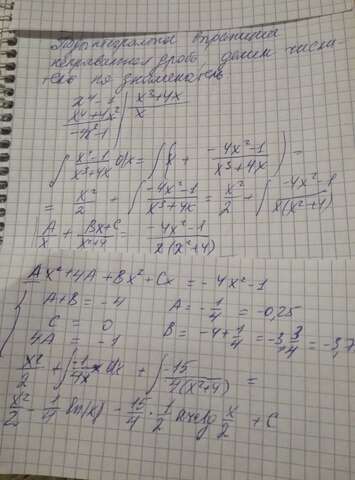 Подынтегральна выражения
неправильная дробь, делим числи-
тель на знаменатель
x⁴-1 | x³+4x
x⁴+4x² | x
-4x²-1
∫ x⁴-1/x³+4x dx = ∫(x + -4x²-1/x³+4x) =
= x²/2 + ∫ -4x²-1/x³+4x = x²/2 + ∫ -4x²-1/x(x²+4)
A/x + Bx+C/x²+4 = -4x²-1/x(x²+4)
Ax²+4A+Bx²+Cx = -4x²-1
A+B = -4 A = -1/4 = -0,25
C = 0 B = -4+1/4 = -3 3/4 = -3,7
4A = -1
x²/2 + ∫ -1/4x dx + ∫ -15/4(x²+4) =
x²/2 - 1/4 ln(x) - 15/4 · 1/2 arctg x/2 + C